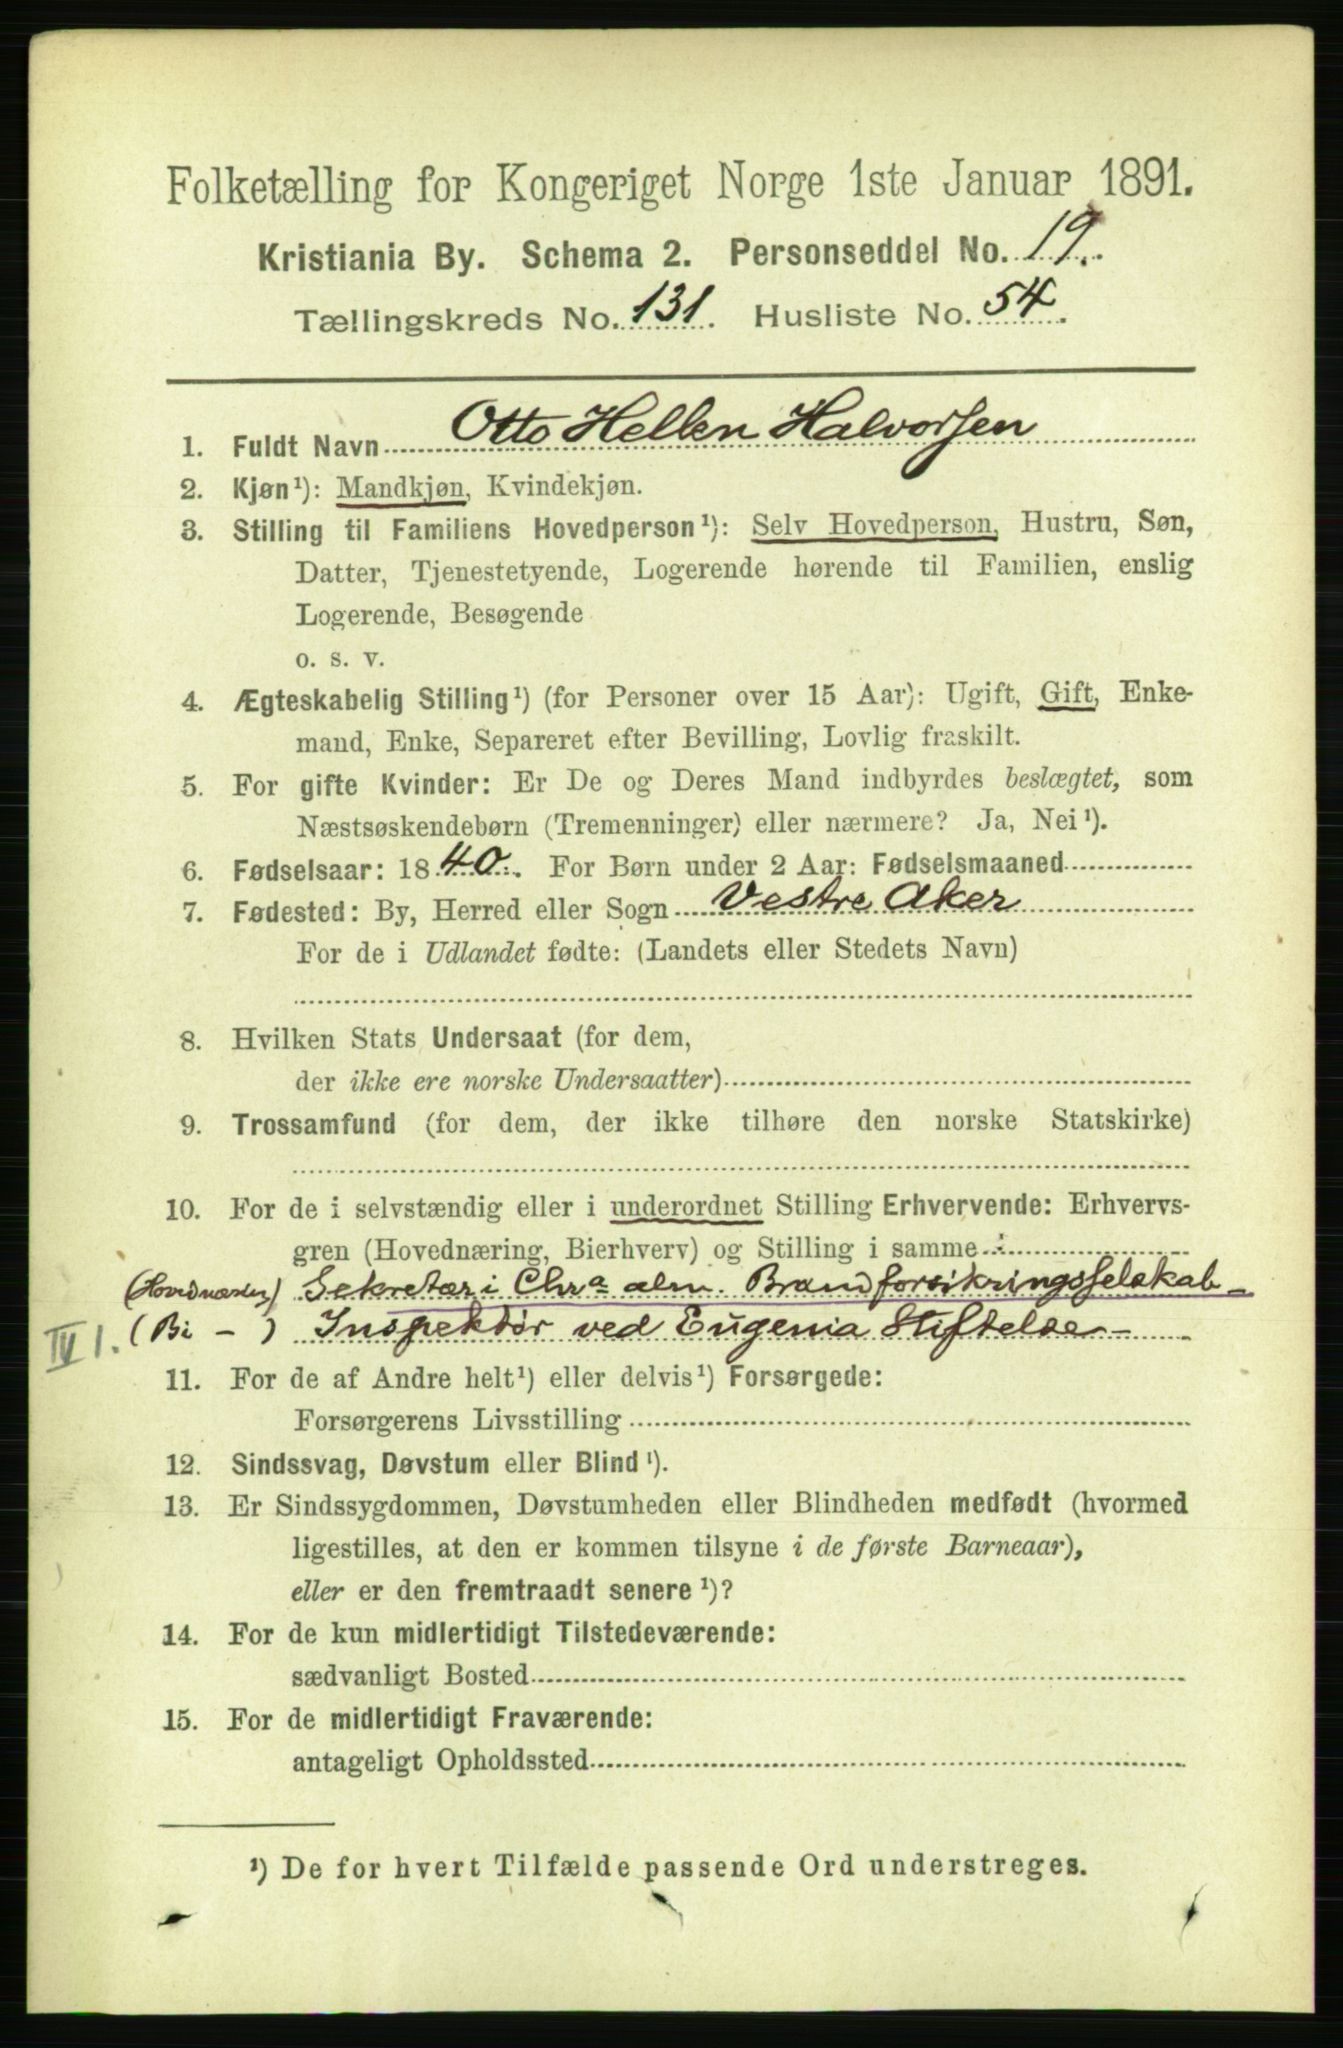 Folketælling for Kongeriget Norge 1ste Januar 1891.
Kristiania By. Schema 2. Personseddel No. 19.
Tællingskreds No. 131. Husliste No. 54.
1. Fuldt Navn Otto Hellen Halvorsen
2. Kjøn¹): Mandkjøn, Kvindekjøn.
3. Stilling til Familiens Hovedperson¹): Selv Hovedperson, Hustru, Søn,
Datter, Tjenestetyende, Logerende hørende til Familien, enslig
Logerende, Besøgende
o. s. v.
4. Ægteskabelig Stilling¹) (for Personer over 15 Aar): Ugift, Gift, Enke-
mand, Enke, Separeret efter Bevilling, Lovlig fraskilt.
5. For gifte Kvinder: Er De og Deres Mand indbyrdes beslægtet, som
Næstsøskendebørn (Tremenninger) eller nærmere? Ja, Nei¹).
6. Fødselsaar: 1840. For Børn under 2 Aar: Fødselsmaaned
7. Fødested: By, Herred eller Sogn Vestre Aker
For de i Udlandet fødte: (Landets eller Stedets Navn)
8. Hvilken Stats Undersaat (for dem,
der ikke ere norske Undersaatter)
9. Trossamfund (for dem, der ikke tilhøre den norske Statskirke)
10. For de i selvstændig eller i underordnet Stilling Erhvervende: Erhvervs-
gren (Hovednæring, Bierhverv) og Stilling i samme :
(Hovednæring) Sekretær i Chrª alm. Brandforsikringsselskab -
IV 1. (Bi - ) Inspektør ved Eugenia Stiftelse -
11. For de af Andre helt¹) eller delvis¹) Forsørgede:
Forsørgerens Livsstilling
12. Sindssvag, Døvstum eller Blind¹).
13. Er Sindssygdommen, Døvstumheden eller Blindheden medfødt (hvormed
ligestilles, at den er kommen tilsyne i de første Barneaar),
eller er den fremtraadt senere¹)?
14. For de kun midlertidigt Tilstedeværende:
sædvanligt Bosted
15. For de midlertidigt Fraværende:
antageligt Opholdssted
¹) De for hvert Tilfælde passende Ord understreges.